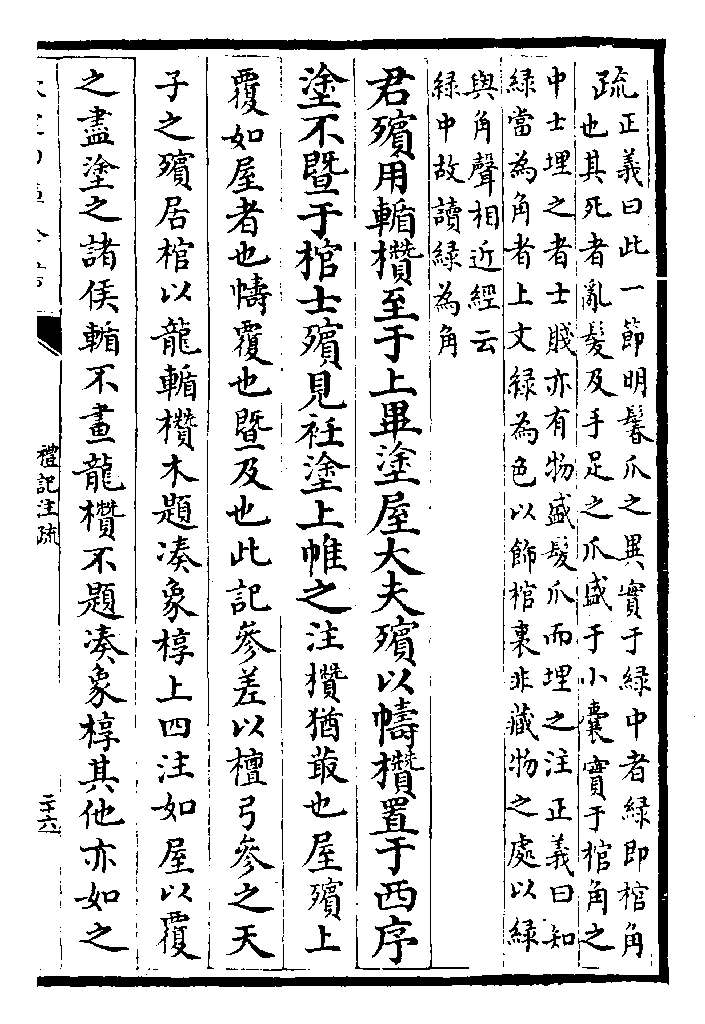 疏正義曰此一節明鬊爪之異實于緑中者緑即棺角
也其死者亂髮及手足之爪盛于小囊實于棺角之
中士埋之者士賤亦有物盛髮爪而埋之注正義曰知
緑當為角者上文緑為色以飾棺裏非藏物之處以緑
與角聲相近經云
緑中故讀緑為角
君殯用輴欑至于上畢塗屋大夫殯以幬欑置于西序
塗不暨于棺士殯見衽塗上帷之注欑猶菆也屋殯上
覆如屋者也幬覆也暨及也此記參差以檀弓參之天
子之殯居棺以龍輴欑木題凑象椁上四注如屋以覆
之盡塗之諸侯輴不畫龍欑不題凑象椁其他亦如之
禮記注疏
二十六